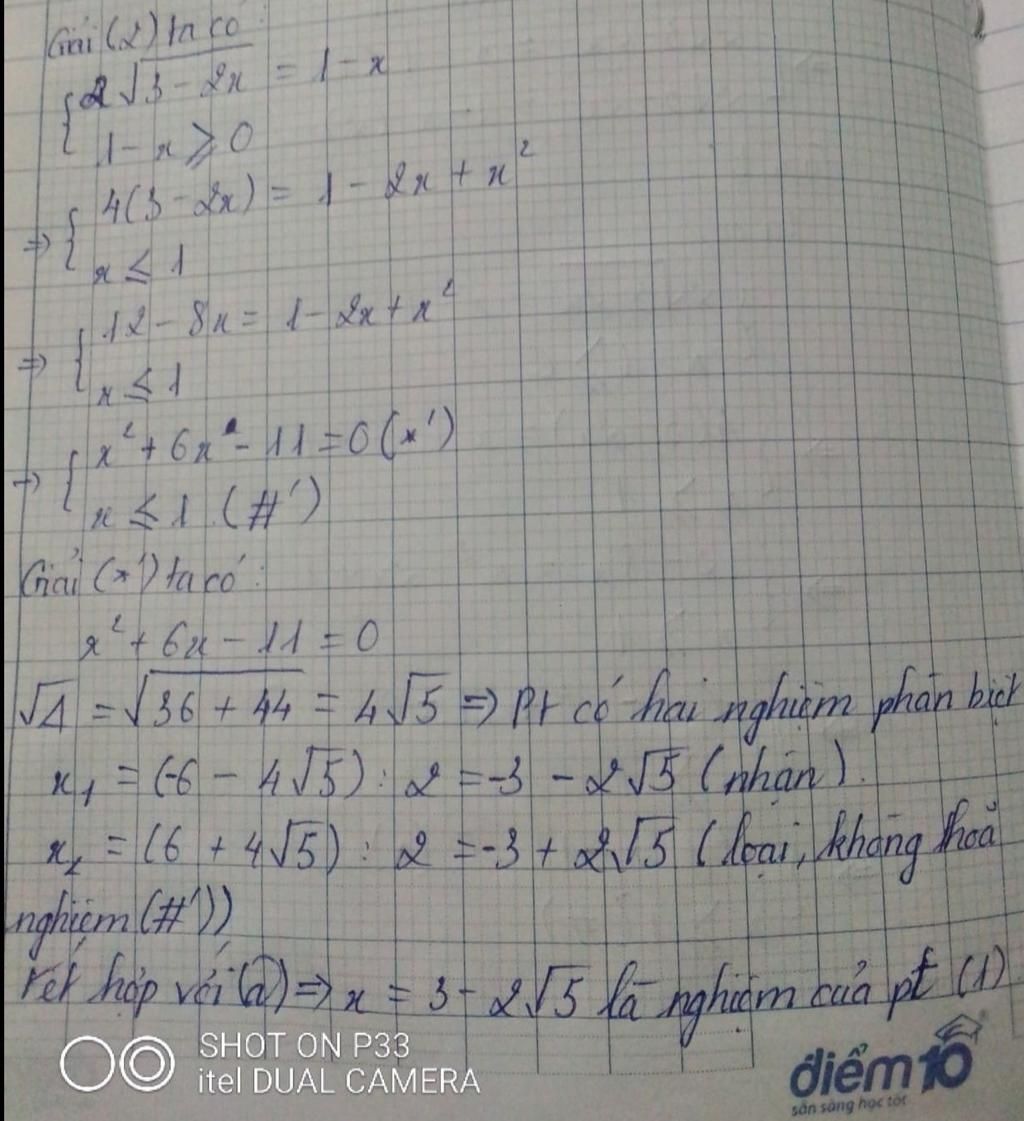 Giải (2) ta có
{ 2√3 - 2x = 1 - x
1 - x ⩾ 0
=> { 4(3 - 2x) = 1 - 2x + x²
x ≤ 1
=> { 12 - 8x = 1 - 2x + x²
x ≤ 1
→ { x² + 6x - 11 = 0 (*')
x ≤ 1 (#')
Giải (*') ta có:
x² + 6x - 11 = 0
√Δ = √36 + 44 = 4√5 => Pt có hai nghiệm phân biệt
x₁ = (-6 - 4√5) : 2 = -3 - 2√5 (nhận).
x₂ = (6 + 4√5) : 2 = -3 + 2√5 (loại, không thoả
nghiệm (#'))
Kết hợp với (a) => x = 3 - 2√5 là nghiệm của pt (1)
SHOT ON P33
itel DUAL CAMERA
điểm 10
sẵn sàng học tốt